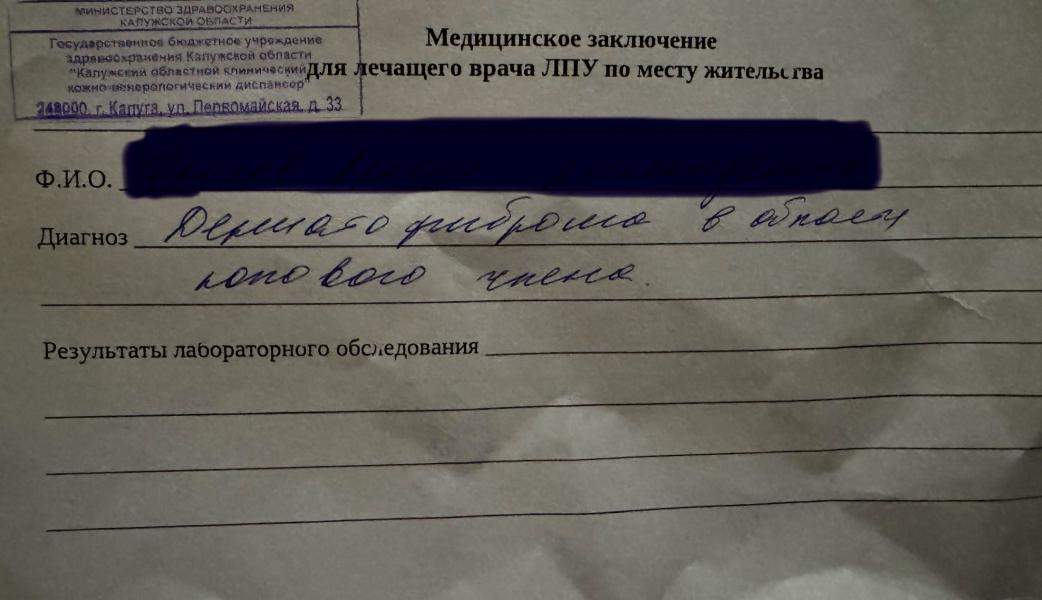 МИНИСТЕРСТВО ЗДРАВООХРАНЕНИЯ
КАЛУЖСКОЙ ОБЛАСТИ
Государственное бюджетное учреждение
здравоохранения Калужской области
"Калужский областной клинический
кожно-венерологический диспансер"
248000, г. Калуга, ул. Первомайская, д. 33
Медицинское заключение
для лечащего врача ЛПУ по месту жительства
Ф.И.О.
Диагноз Дерматофиброма в области
полового члена.
Результаты лабораторного обследования